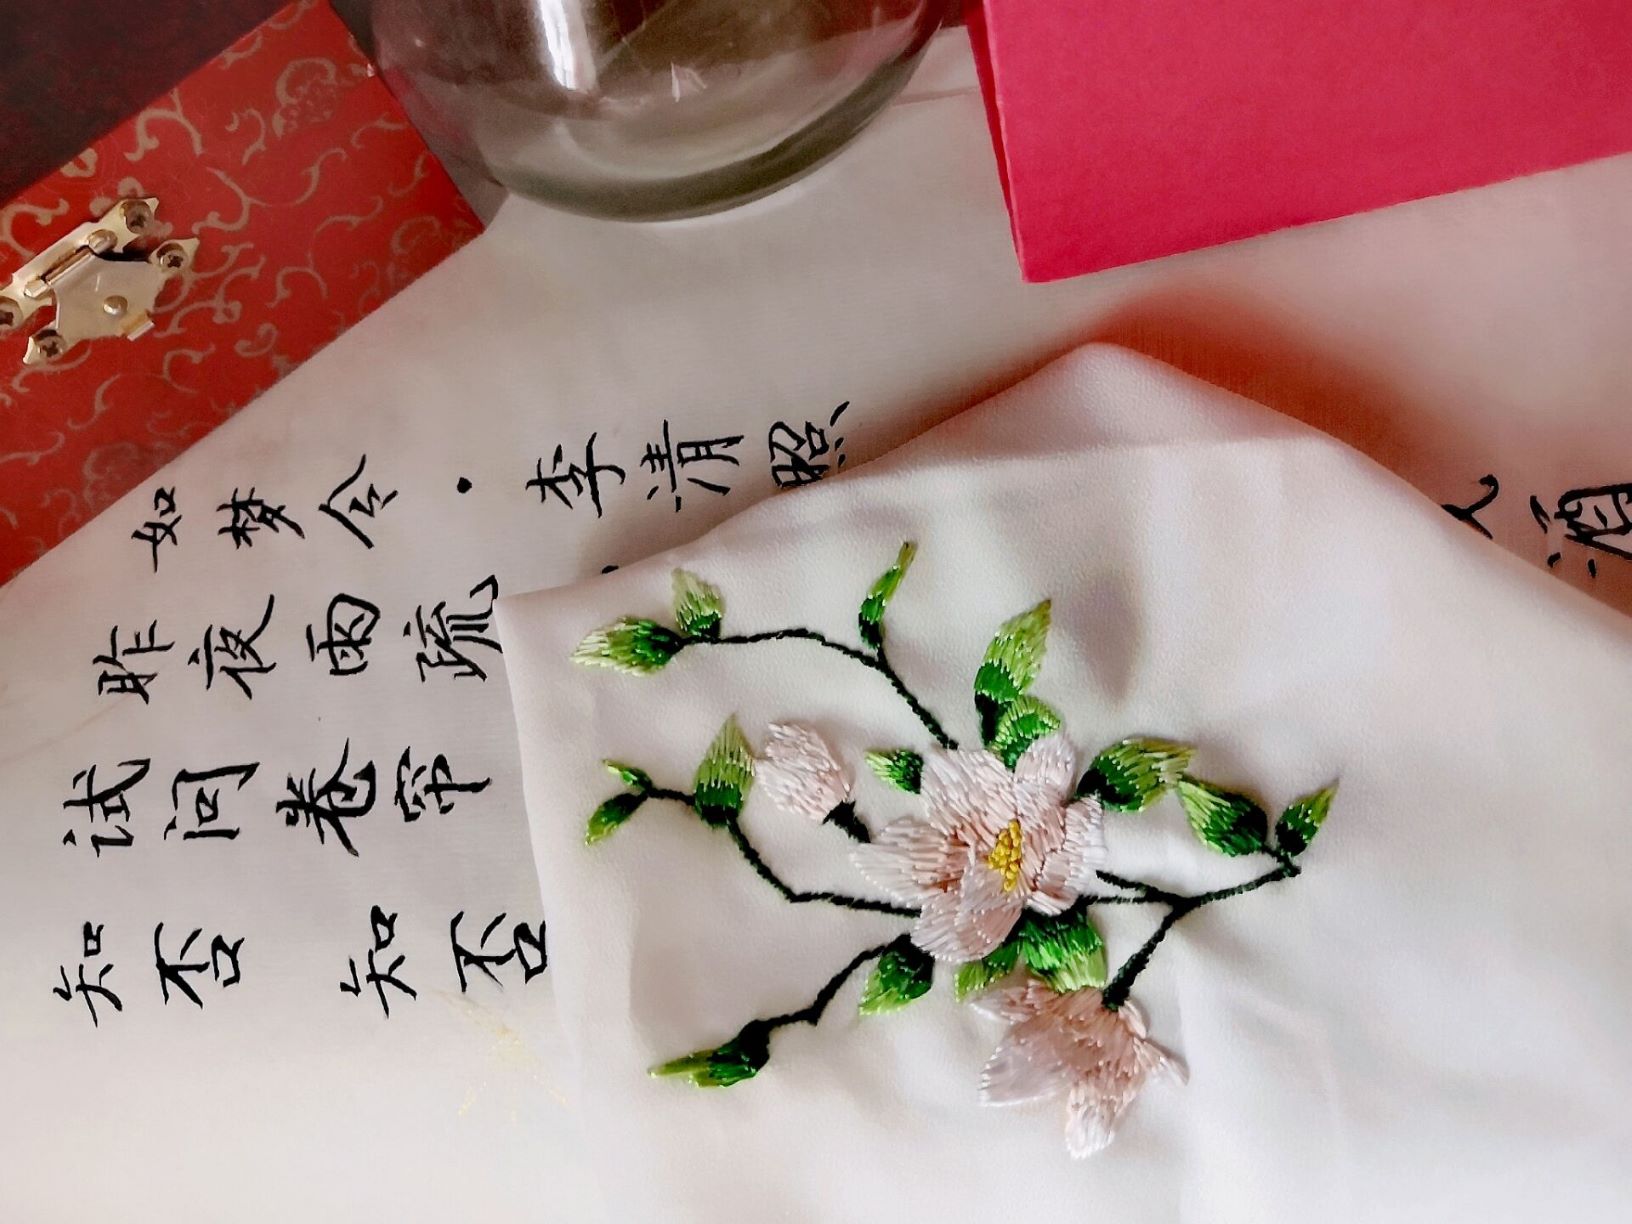 如梦令·李清照
昨夜雨疏 消
试问卷帘
知否 知否